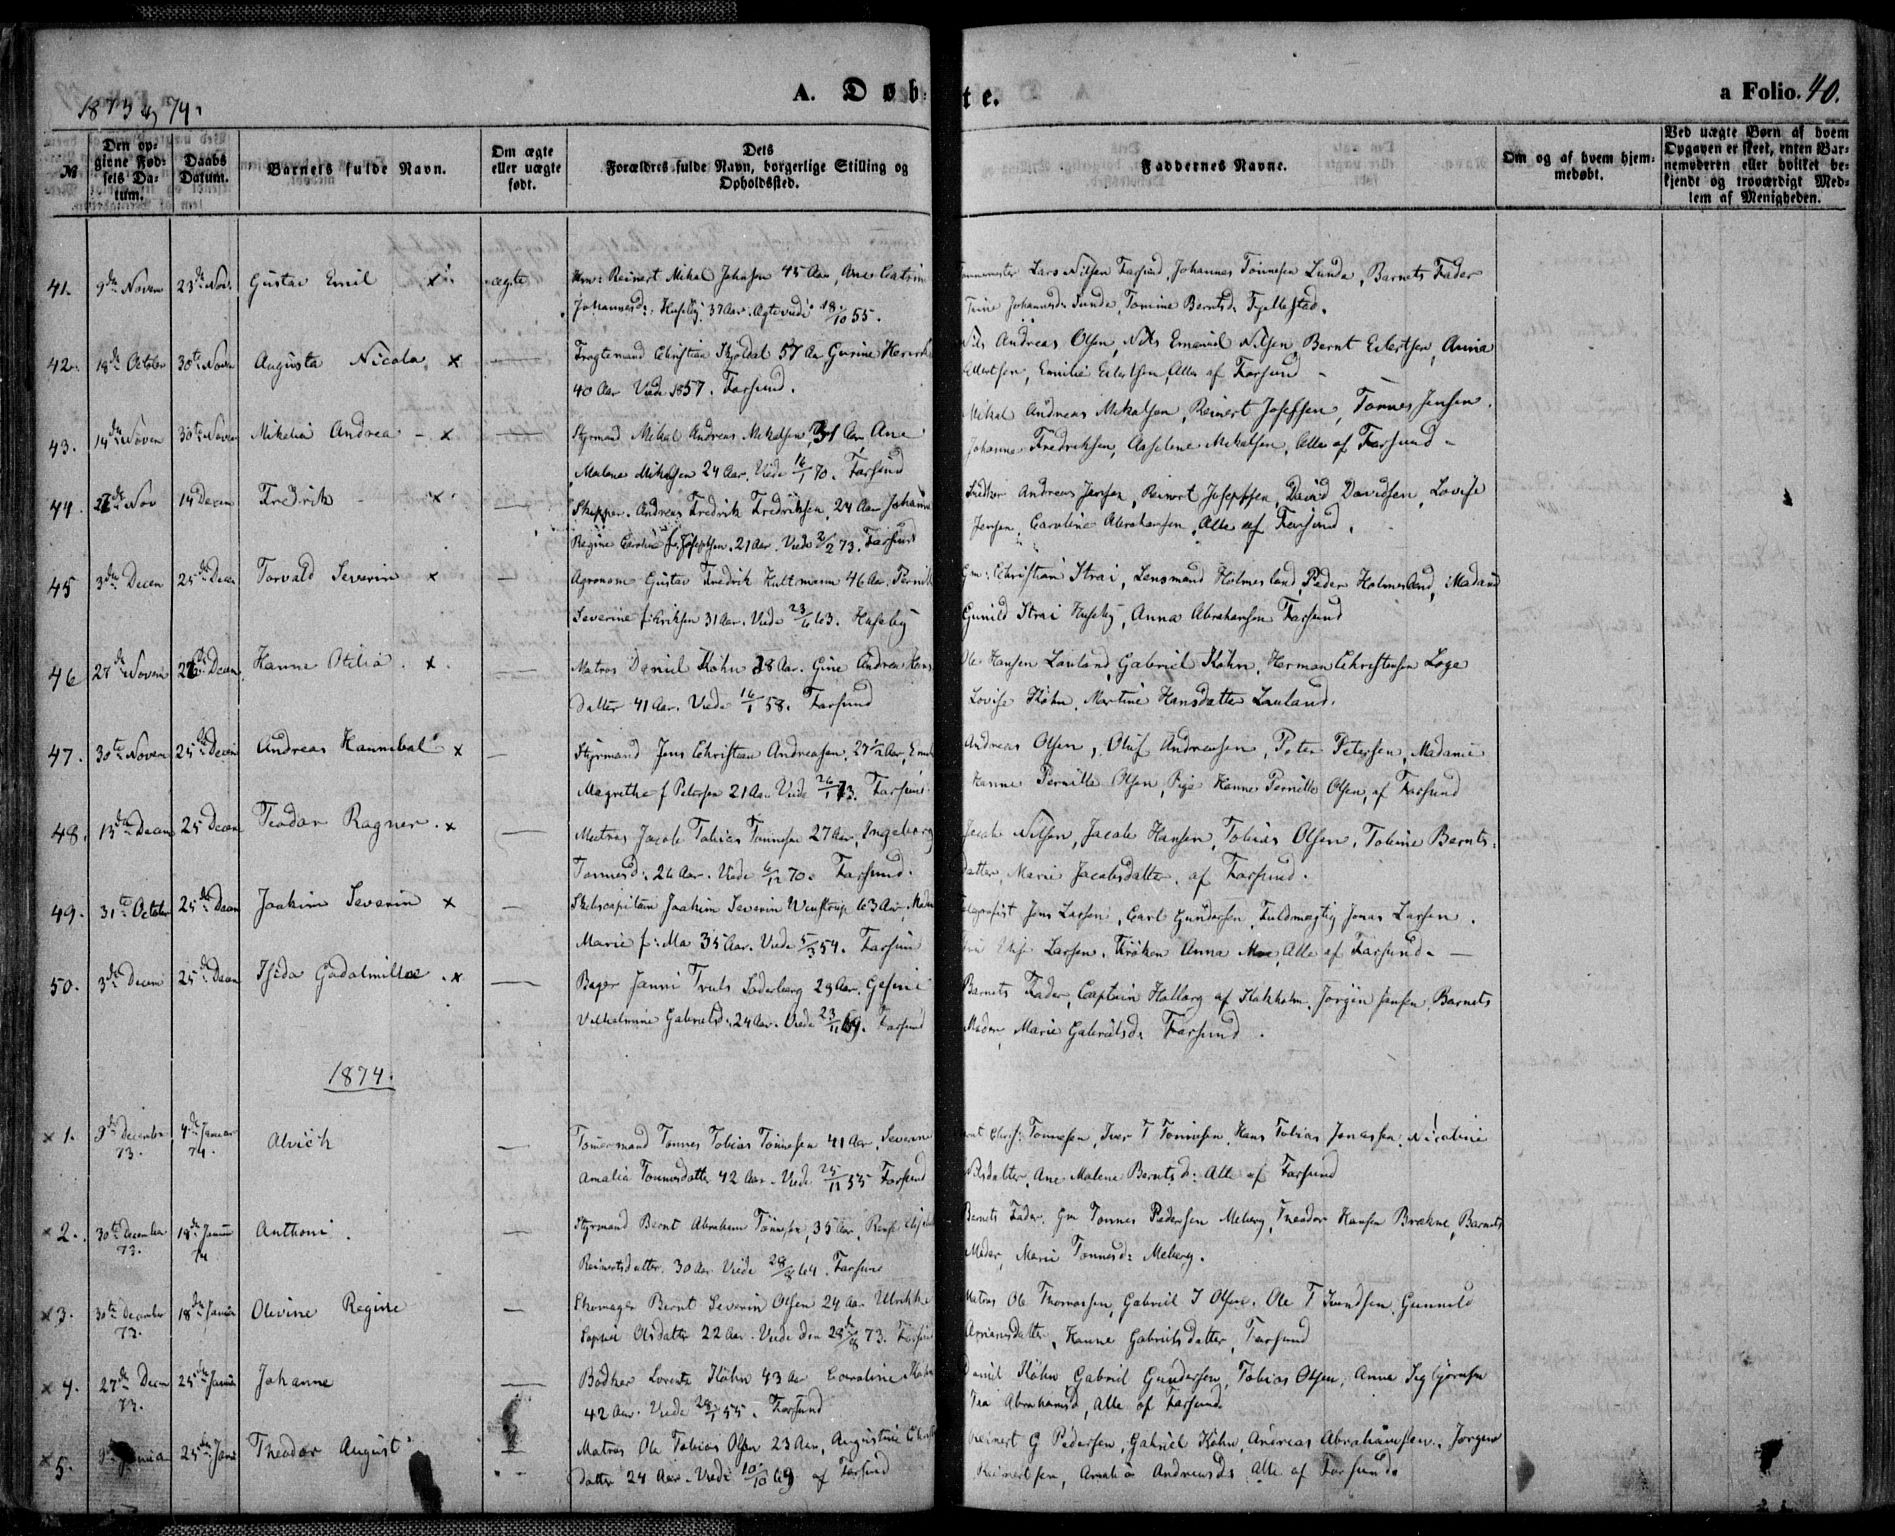 1873 og 74.
A. Døb-
te.
a Folio. 40.
№
Den opgivne Fødsels Datum.
Daabs Datum.
Barnets fulde Navn.
Om ægte eller uægte født.
Dets Forældres fulde Navn, borgerlige Stilling og Opholdssted.
Faddernes Navne.
Om og af hvem hjemmedøbt.
Ved uægte Børn af hvem Opgaven er skeet, enten Barnemoderen eller hvilket bekjendt og troværdigt Medlem af Menigheden.
41. 9de Novem 23de Nov. Gustav Emil x ægte Hmd: Reinert Mikal Johnsen 45 Aar, Ane Catrine
Johannesd: Huseby 37 Aar. Ægteviede 18/10 55.
Lars Nilsen Farsund, Johannes Tönnesen Lunde, Barnets Fader
Trine Johannesd: Sunde, Tomine Berntsd: Fjellestad.
42. 18de October 30te Novem Augusta Nicola x Fragtemand Christian Skjoldal 57 Aar Gurine
40 Aar Viede 1857. Farsund.
Nils Andreas Olsen, Nils Emanuel Nilsen, Bernt Eilertsen, Anna
Eilertsen, Emilie Eilertsen, Alle af Farsund
43. 14de Novem 30te Novem Mikelia Andrea x Styrmand Mikal Andreas Mikalsen, 31 Aar Ane
Malene Mikalsen 24 Aar. Viede 16/1 70. Farsund
Mikal Andreas Mekalsen, Reinert Josefsen, Tönnes Jensen,
Johanne Fredriksen, Asselene Mekalsen, Alle af Farsund
44. Nov 14 Decem Fredrik x Skipper Andreas Fredrik Fredriksen, 24 Aar Johanne
Regine Caroline f. Josephsen. 21 Aar. Viede 2/2 73. Farsund
Andreas Jensen, Reinert Josephsen, David Davidsen, Lovise
Jensen, Caroline Abrahamsen, Alle af Farsund.
45 3die Decem 25de Decem Torvald Severin x Agronom Gustav Fredrik Hultmann 46 Aar. Pernille
Severine f. Eriksen 31 Aar. Viede 23/6 63. Huseby
Gm: Christian Strai, Lensmand Holmesland, Peder Holmesland, Madam
Gunild Strai Huseby, Anna Abrahamsen Farsund
46 27de Novem 26de Decem Hanne Otelia x Matros Daniel Köhn 38 Aar. Gine Andrea Hans
Datter 41 Aar. Viede 16/1 58. Farsund
Ole Hansen Lauland, Gabriel Köhn, Herman Christensen Loge
Lovise Köhn, Martine Hansdatter Lauland.
47. 30te Novem 25de Decem Andreas Hannibal x Styrmand Jens Christian Andreasen, 27 1/2 Aar,
Magrethe f Petersen 21 Aar Viede 26/1 73. Farsund
Andreas Olsen, Oluf Andreasen, Peter Petersen, Madame
Hanne Pernille Olsen, Pige Hanne Pernille Olsen, af Farsund
48. 13de Decem 25 Decem Teodor Ragner x Matros Jacob Tobias Tönnesen 27 Aar, Ingeborg
Tonnesd: 26 Aar. Viede 6/12 70. Farsund.
Jacob Nilsen, Jacob Hansen, Tobias Olsen, Tobine Bernts-
datter, Marie Jacobsdatter, af Farsund.
49. 31te October 25de Decem Joakim Severin x Skibscapitain Joakim Severin Winstrup 63 Aar,
Marie f: Ma 35 Aar. Viede 5/3 54. Farsund
Telegrafist Jens Larsen, Carl Gundersen, Fuldmægtig Jonas Larsen.
Larsen, Frøken Anna Moe, Alle af Farsund.
50. 3de Decem 25de Decem Isida Gadalmillae x Bager Janni Truls Søderberg 29 Aar. Gesine
Vilhelmine Gabrielsd: 24 Aar. Viede 23/11 69. Farsund
Barnets Fader, Captein Hallarg af Flekholm, Jörgen Jensen, Barnets
Moder, Marie Gabrielsd: Farsund.
1874.
x 1. 9de December 73. 4de Januar 74. Alvich Tömermand Tönnes Tobias Tönnesen 41 Aar, Severine
Amalia Tonnesdatter 42 Aar. Viede 25/11 55 Farsund
Tönnesen, Iver T Tönnesen, Hans Tobias Jonassen, Nicoline
Nilsdatter, Ane Malene Berntsd: Alle af Farsund
x 2. 30te December 73. 18de Januar 74 Anthoni. Styrmand Bernt Abraham Tönnesen, 35 Aar,
Reinertsdatter 30 Aar Viede 28/8 64. Farsund
Barnets Fader, Gm Tönnes Pedersen Meberg, Theodor Hansen Brekne, Barnets
Moder, Marie Tönnesd: Meberg.
x 3. 30te December 73. 18de Januar Olevine Regine Skomager Bernt Severin Olsen 24 Aar Ulrikke
Sophie Olsdatter 22 Aar. Viede den 28/8 73. Farsund
Matros Ole Thomassen, Gabriel I Olsen, Ole T Knudsen, Gunneld
Arnansdatter, Hanne Gabrielsdatter, Farsund
x 4. 27de Decem 73. 25de Januar Johanne Bødker Lorentz Köhn 43 Aar Caroline Köhn
42 Aar. Viede 28/1 55. Farsund
Daniel Köhn Gabriel Gundersen, Tobias Olsen, Anne Seg björnsen
Tea Abrahamsd, alle af Farsund.
x 5. 25de Janu Theodor August Matros Ole Tobias Olsen 23 Aar, Augustine
datter 24 Aar. Viede 10/10 69 af Farsund
Reinert G Pedersen, Gabriel Köhn, Andreas Abrahamsen, Jörgen
Reinertsen, Amalia Andreasd: Alle af Farsund.